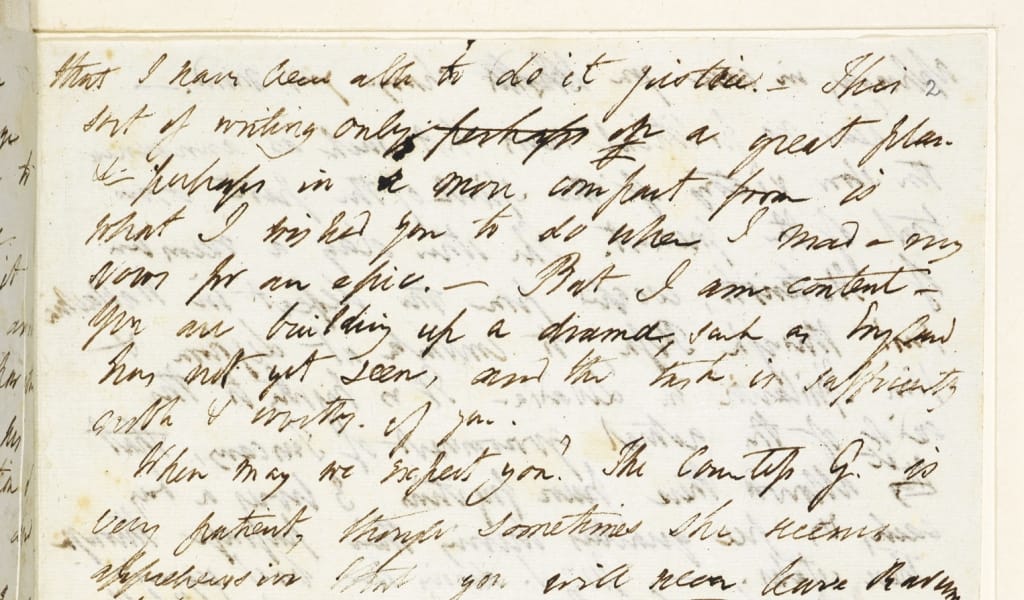 that I have been able to do it justice. – This 2
sort of writing only perhaps on a great plan
& perhaps in a more compact form is
what I wished you to do when I made my
vows for an epic. — But I am content –
You are building up a drama, such as England
has not yet seen, and the task is sufficiently
noble & worthy of you.
When may we expect you? The Countess G. is
very patient, though sometimes she seems
apprehensive that you will never leave Ravenna